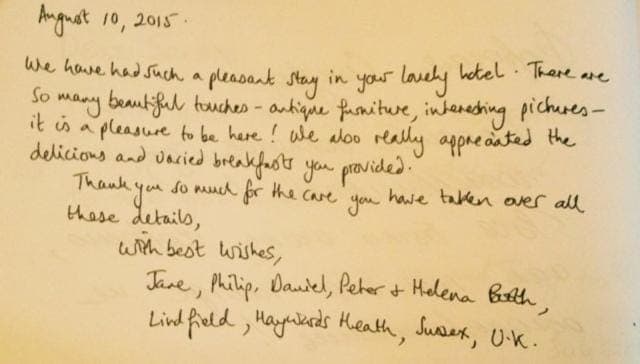 August 10, 2015.
We have had such a pleasant stay in your lovely hotel. There are
so many beautiful touches - antique furniture, interesting pictures -
it is a pleasure to be here! We also really appreciated the
delicious and varied breakfasts you provided.
Thank you so much for the care you have taken over all
these details,
With best wishes,
Jane, Philip, Daniel, Peter + Helena
Lindfield, Haywards Heath, Sussex, U.K.